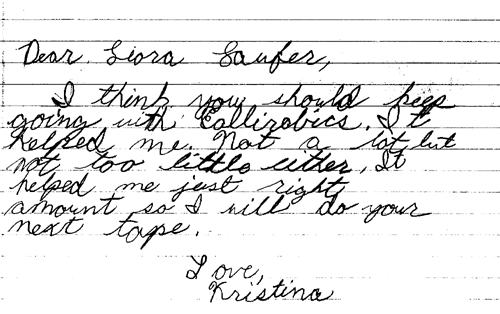 Dear Liora Laufer,
I think you should keep
going with Callirobics. It
helped me. Not a lot but
not too little either, It
helped me just right
amount so I will do your
next tape.
Love,
Kristina